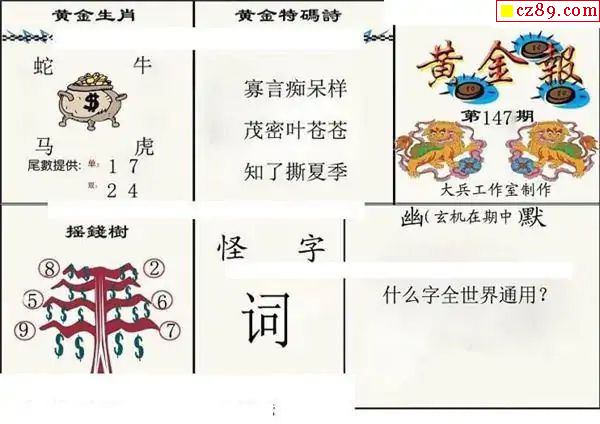 cz89.com
黄金生肖
蛇 牛
马 虎
尾數提供: 单: 1 7
双: 2 4
黄金特碼詩
寡言痴呆样
茂密叶苍苍
知了撕夏季
黄金報
第147期
大兵工作室制作
摇錢樹
⑧ ②
⑤ ⑥
⑨ ⑦
怪 字
词
幽(玄机在期中)默
什么字全世界通用?